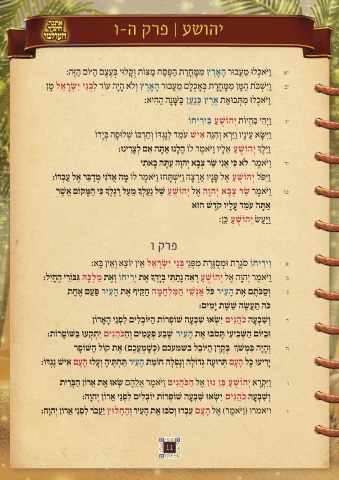 יהושע | פרק ה-ו
יא ויאכלו מעבור הארץ ממחרת הפסח מצות וקלוי בעצם היום הזה:
יב וישבת המן ממחרת באכלם מעבור הארץ ולא היה עוד לבני ישראל מן
ויאכלו מתבואת ארץ כנען בשנה ההיא:
יג ויהי בהיות יהושע ביריחו
וישא עיניו וירא והנה איש עמד לנגדו וחרבו שלופה בידו
וילך יהושע אליו ויאמר לו הלנו אתה אם לצרינו:
יד ויאמר לא כי אני שר צבא יהוה עתה באתי
ויפל יהושע אל פניו ארצה וישתחו ויאמר לו מה אדני מדבר אל עבדו:
טו ויאמר שר צבא יהוה אל יהושע של נעלך מעל רגלך כי המקום אשר
אתה עמד עליו קדש הוא
ויעש יהושע כן:
פרק ו
א ויריחו סגרת ומסגרת מפני בני ישראל אין יוצא ואין בא:
ב ויאמר יהוה אל יהושע ראה נתתי בידך את יריחו ואת מלכה גבורי החיל:
ג וסבתם את העיר כל אנשי המלחמה הקיף את העיר פעם אחת
כה תעשה ששת ימים:
ד ושבעה כהנים ישאו שבעה שופרות היובלים לפני הארון
וביום השביעי תסבו את העיר שבע פעמים והכהנים יתקעו בשופרות:
ה והיה במשך בקרן היובל בשמעכם (כשמעכם) את קול השופר
יריעו כל העם תרועה גדולה ונפלה חומת העיר תחתיה ועלו העם איש נגדו:
ו ויקרא יהושע בן נון אל הכהנים ויאמר אלהם שאו את ארון הברית
ושבעה כהנים ישאו שבעה שופרות יובלים לפני ארון יהוה:
ז ויאמרו (ויאמר) אל העם עברו וסבו את העיר והחלוץ יעבר לפני ארון יהוה:
11